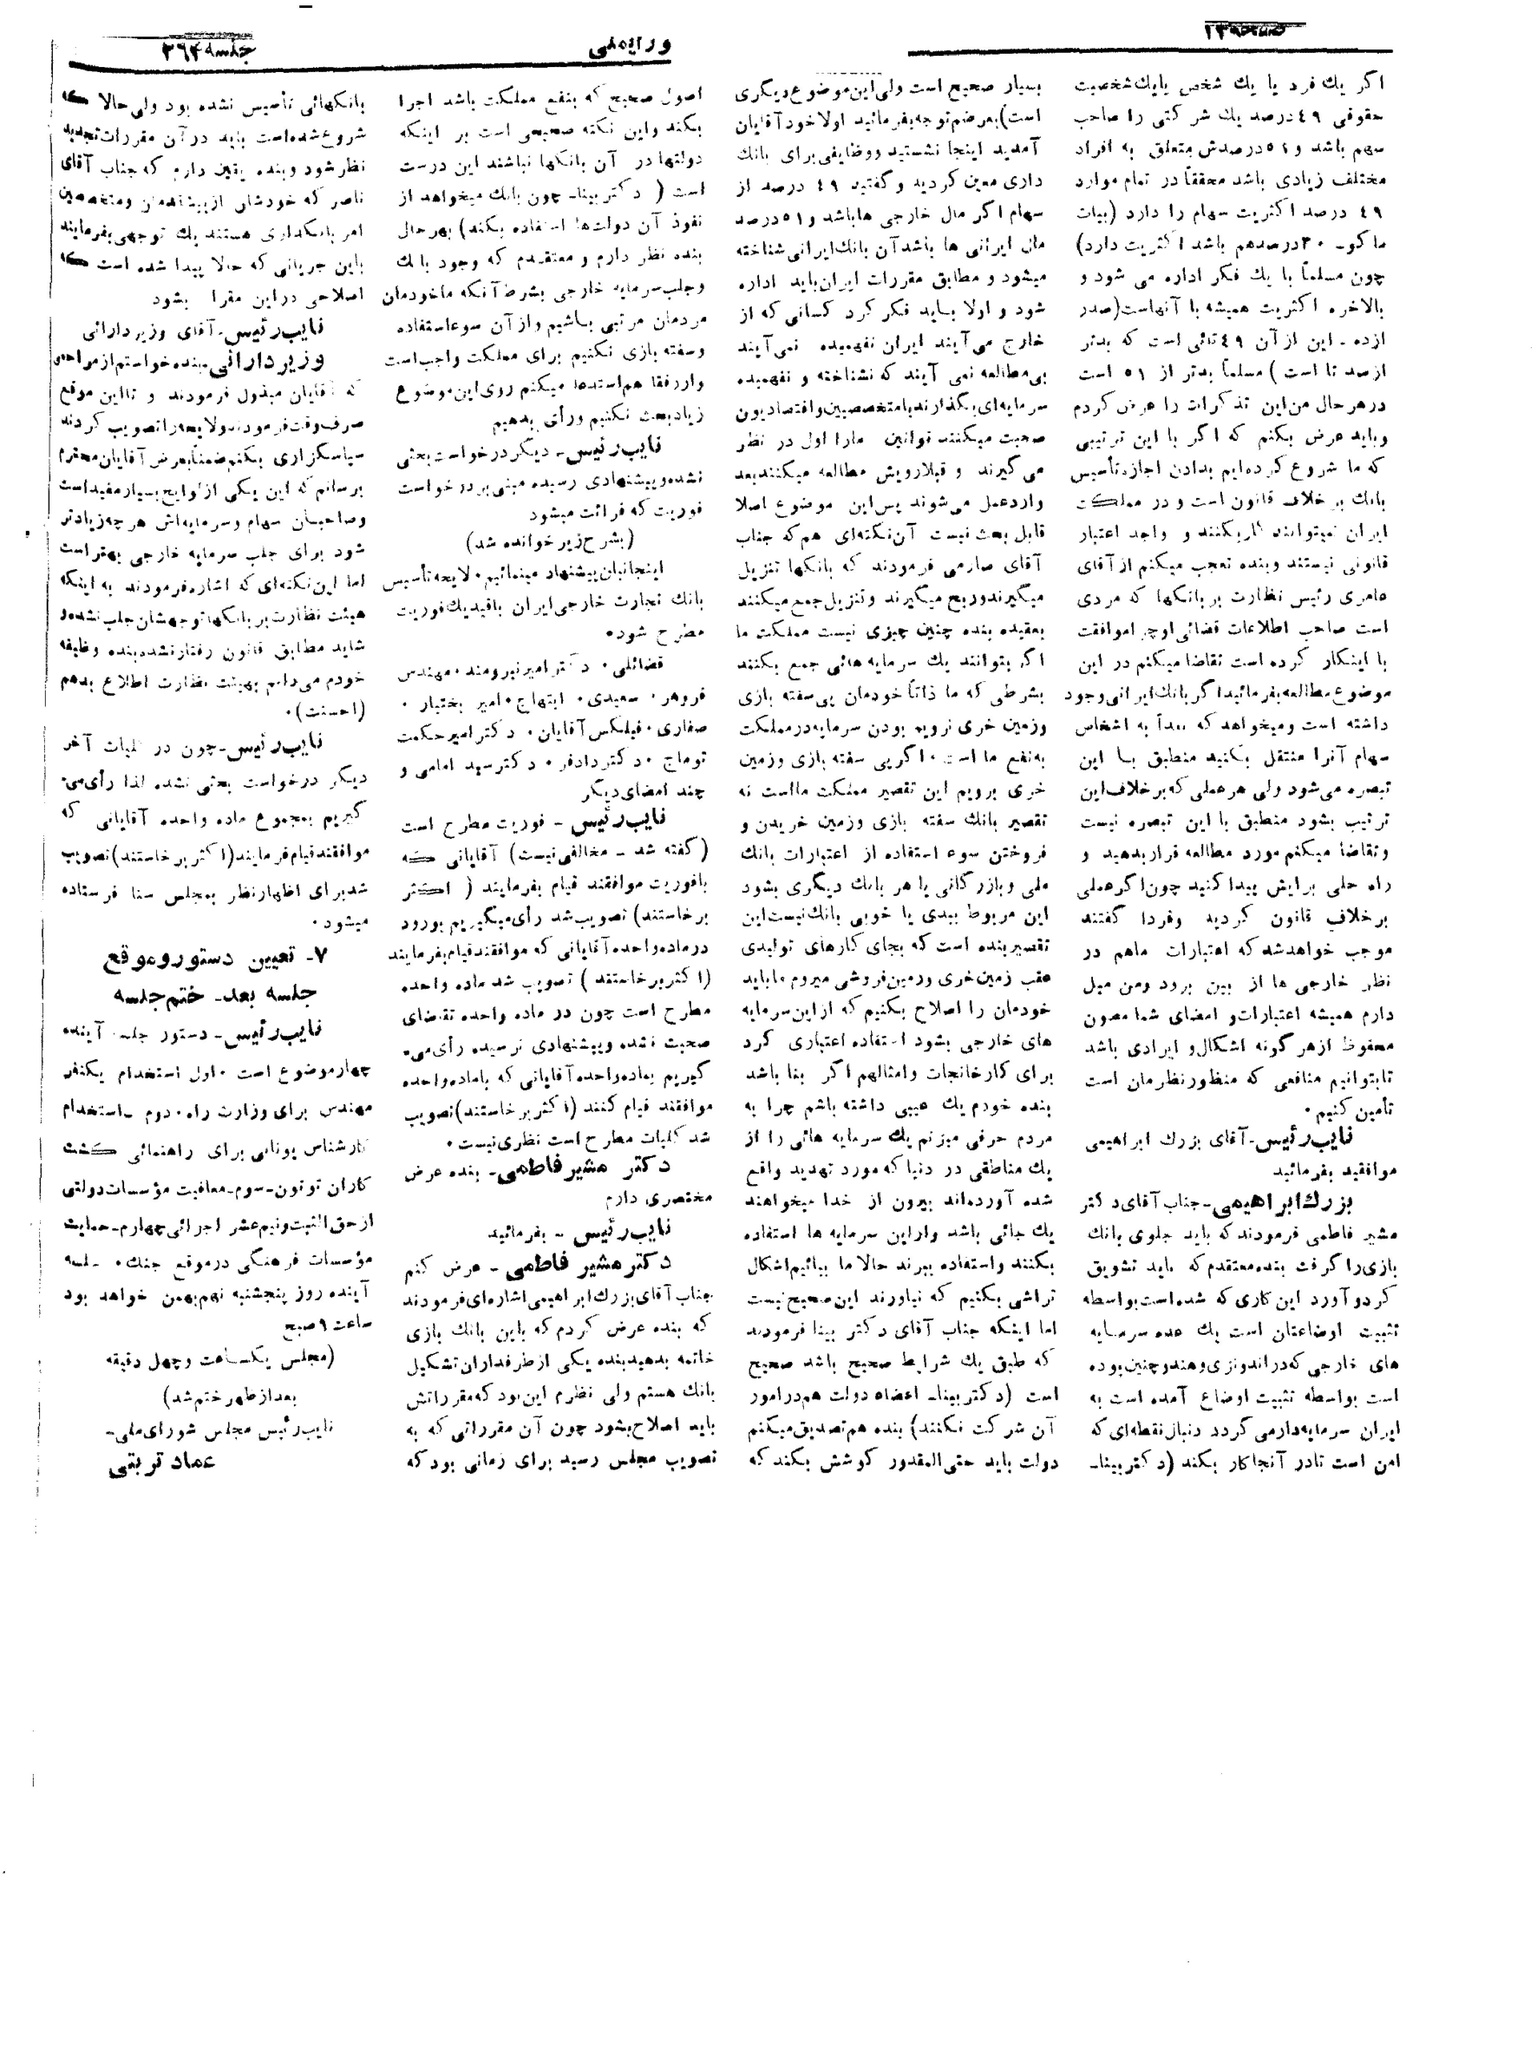 صفحه ۱۳
جلسه ۲۶۴
اگر یك فرد یا یك شخص یا یك شخصیت
حقوقی ٤٩ درصد یك شرکتی را صاحب
سهم باشد و ٥١ درصدش متعلق به افراد
مختلف زیادی باشد محققاً در تمام موارد
٤٩ درصد اکثریت سهام را دارد (بیات
ماکو- ٣٠ درصدهم باشد اکثریت دارد)
چون مسلماً با یك فکر اداره می شود و
بالاخره اکثریت همیشه با آنهاست (صدر
زاده - این از آن ٤٩ تائی است که بدتر
از صد تا است) مسلماً بدتر از ٥١ است
در هر حال من این تذکرات را عرض کردم
و باید عرض بکنم که اگر با این ترتیبی
که ما شروع کرده‌ایم بدادن اجازه تأسیس
بانك بر خلاف قانون است و در مملکت
ایران نمیتوانند کار بکنند و واجد اعتبار
قانونی نیستند و بنده تعجب میکنم از آقای
عامری رئیس نظارت بر بانکها که مردی
است صاحب اطلاعات قضائی او چرا موافقت
با اینکار کرده است تقاضا میکنم در این
موضوع مطالعه بفرمائید اگر بانك ایرانی وجود
داشته است و میخواهد که بعداً به اشخاص
سهام آنرا منتقل بکنید منطبق با این
تبصره می شود ولی هر عملی که بر خلاف این
ترتیب بشود منطبق با این تبصره نیست
و تقاضا میکنم مورد مطالعه قرار بدهید و
راه حلی برایش پیدا کنید چون اگر عملی
بر خلاف قانون کردید و فردا گفتند
موجب خواهد شد که اعتبارات ما هم در
نظر خارجی ها از بین برود و من میل
دارم همیشه اعتبارات و امضای شما مصون
محفوظ از هر گونه اشکال و ایرادی باشد
تا بتوانیم منافعی که منظور نظرمان است
تأمین کنیم.
نایب رئیس- آقای بزرك ابراهیمی
موافقید بفرمائید
بزرك ابراهیمی- جناب آقای دکتر
مشیر فاطمی فرمودند که باید جلوی بانك
بازی را گرفت بنده معتقدم که باید تشویق
کرد و آورد این کاری که شده است بواسطه
تثبیت اوضاعتان است یك عده سرمایه
های خارجی که در اندونزی و هند و چنین بوده
است بواسطه تثبیت اوضاع آمده است به
ایران سرمایه دار می گردد دنبال نقطه‌ای که
امن است تا در آنجا کار بکند (دکتر بینا-
بسیار صحیح است ولی این موضوع دیگری
است) بعرضم توجه بفرمائید اولا خود آقایان
آمدید اینجا نشستید و وظایفی برای بانك
داری معین کردید و گفتید ٤٩ درصد از
سهام اگر مال خارجی ها باشد و ٥١ درصد
مال ایرانی ها باشد آن بانك ایرانی شناخته
میشود و مطابق مقررات ایران باید اداره
شود و اولا باید فکر کرد کسانی که از
خارج می آیند ایران نفهمیده نمی آیند
بی مطالعه نمی آیند که نشناخته و نفهمیده
سرمایه‌ای بگذارند با متخصصین و اقتصادیون
صحبت میکنند قوانین ما را اول در نظر
می گیرند و قبلا رویش مطالعه میکنند بعد
وارد عمل می شوند پس این موضوع اصلا
قابل بحث نیست آن نکته‌ای هم که جناب
آقای صارمی فرمودند که بانکها تنزیل
میگیرند و ربح میگیرند و تنزیل جمع میکنند
بعقیده بنده چنین چیزی نیست مملکت ما
اگر بتوانند یك سرمایه هائی جمع بکنند
بشرطی که ما ذاتاً خودمان پی سفته بازی
وزمین خری نرویم بودن سرمایه در مملکت
به نفع ما است. اگر پی سفته بازی و زمین
خری برویم این تقصیر مملکت ما است نه
تقصیر بانك سفته بازی و زمین خریدن و
فروختن سوء استفاده از اعتبارات بانك
ملی و بازرگانی یا هر بانك دیگری بشود
این مربوط ببدی یا خوبی بانك نیست این
تقصیر بنده است که بجای کارهای تولیدی
عقب زمین خری و زمین فروشی میروم ما باید
خودمان را اصلاح بکنیم که از این سرمایه
های خارجی بشود استفاده اعتباری کرد
برای کارخانجات و امثالهم اگر بنا باشد
بنده خودم یك عیبی داشته باشم چرا به
مردم حرفی میزنم یك سرمایه هائی را از
یك مناطقی در دنیا که مورد تهدید واقع
شده آورده‌اند بیرون از خدا میخواهند
یك جائی باشد و از این سرمایه ها استفاده
بکنند و استفاده ببرند حالا ما بیائیم اشکال
تراشی بکنیم که نیاورند این صحیح نیست
اما اینکه جناب آقای دکتر بینا فرمودند
که طبق یك شرایط صحیح باشد صحیح
است (دکتر بینا- اعضاء دولت هم در امور
آن شرکت نکنند) بنده هم تصدیق میکنم
دولت باید حتی المقدور کوشش بکند که
اصول صحیح که بنفع مملکت باشد اجرا
بکند و این نکته صحیحی است بر اینکه
دولتها در آن بانکها نباشند این درست
است (دکتر بینا- چون بانك میخواهد از
نفوذ آن دولت ها استفاده بکند) بهر حال
بنده نظر دارم و معتقدم که وجود بانك
و جلب سرمایه خارجی بشرط آنکه ما خودمان
مردمان مرتبی باشیم و از آن سوء استفاده
و سفته بازی نکنیم برای مملکت واجب است
و از رفقا هم استدعا میکنم روی این موضوع
زیاد بحث نکنیم و رأی بدهیم
نایب رئیس- دیگر درخواست بحثی
نشده و پیشنهادی رسیده مبنی بر درخواست
فوریت که قرائت میشود
(بشرح زیر خوانده شد)
اینجانبان پیشنهاد مینمائیم. لایحه تأسیس
بانك تجارت خارجی ایران با قید یك فوریت
مطرح شود.
فضائلی. دکتر امیر نیرومند. مهندس
فروهر. سعیدی. ابتهاج. امیر بختیار.
صفاری. فیلکس آقایان. دکتر امیر حکمت
توماج. دکتر دادفر. دکتر سید امامی و
چند امضای دیگر
نایب رئیس- فوریت مطرح است
(گفته شد - مخالفی نیست) آقایانی که
با فوریت موافقند قیام بفرمایند (اکثر
برخاستند) تصویب شد رأی میگیریم بورود
در ماده واحده آقایانی که موافقند قیام بفرمایند
(اکثر برخاستند) تصویب شد ماده واحده
مطرح است چون در ماده واحده تقاضای
صحبت نشده و پیشنهادی نرسیده رأی می-
گیریم بماده واحده آقایانی که با ماده واحده
موافقند قیام کنند (اکثر برخاستند) تصویب
شد کلیات مطرح است نظری نیست.
دکتر مشیر فاطمی- بنده عرض
مختصری دارم
نایب رئیس - بفرمائید
دکتر مشیر فاطمی- عرض کنم
جناب آقای بزرك ابراهیمی اشاره‌ای فرمودند
که بنده عرض کردم که باین بانك بازی
خاتمه بدهید بنده یکی از طرفداران تشکیل
بانك هستم ولی نظرم این بود که مقرراتش
باید اصلاح بشود چون آن مقرراتی که به
تصویب مجلس رسید برای زمانی بود که
بانکهائی تأسیس نشده بود ولی حالا که
شروع شده است باید در آن مقررات تجدید
نظر شود و بنده یقین دارم که جناب آقای
ناصر که خودشان از پیشقدمان و متخصصین
امر بانکداری هستند یك توجهی بفرمایند
باین جریانی که حالا پیدا شده است که
اصلاحی در این مقررات بشود
نایب رئیس- آقای وزیر دارائی
وزیر دارائی- بنده خواستم از مراحمی
که آقایان مبذول فرمودند و تا این موقع
صرف وقت فرمودند و لایحه را تصویب کردند
سپاسگزاری بکنم ضمناً بعرض آقایان محترم
برسانم که این یکی از لوایح بسیار مفید است
و صاحبان سهام و سرمایه‌اش هر چه زیادتر
شود برای جلب سرمایه خارجی بهتر است
اما این نکته‌ای که اشاره فرمودند به اینکه
هیئت نظارت بر بانکها توجهشان جلب نشده و
شاید مطابق قانون رفتار نشده بنده وظیفه
خودم می‌دانم بهیئت نظارت اطلاع بدهم
(احسنت).
نایب رئیس- چون در کلیات آخر
دیگر درخواست بحثی نشده لذا رأی می-
گیریم بمجموع ماده واحده آقایانی که
موافقند قیام فرمایند (اکثر برخاستند) تصویب
شد برای اظهار نظر بمجلس سنا فرستاده
میشود.
۷- تعیین دستور و موقع
جلسه بعد- ختم جلسه
نایب رئیس- دستور جلسه آینده
چهار موضوع است. اول استخدام یکنفر
مهندس برای وزارت راه. دوم - استخدام
کارشناس یونانی برای راهنمائی کشت
کاران توتون- سوم- معافیت مؤسسات دولتی
از حق الثبت و نیم عشر اجرائی چهارم- حمایت
مؤسسات فرهنگی در موقع جنك. جلسه
آینده روز پنجشنبه نهم بهمن خواهد بود
ساعت ٩ صبح
(مجلس یکساعت و چهل دقیقه
بعد از ظهر ختم شد)
نایب رئیس مجلس شورای ملی-
عماد تربتی